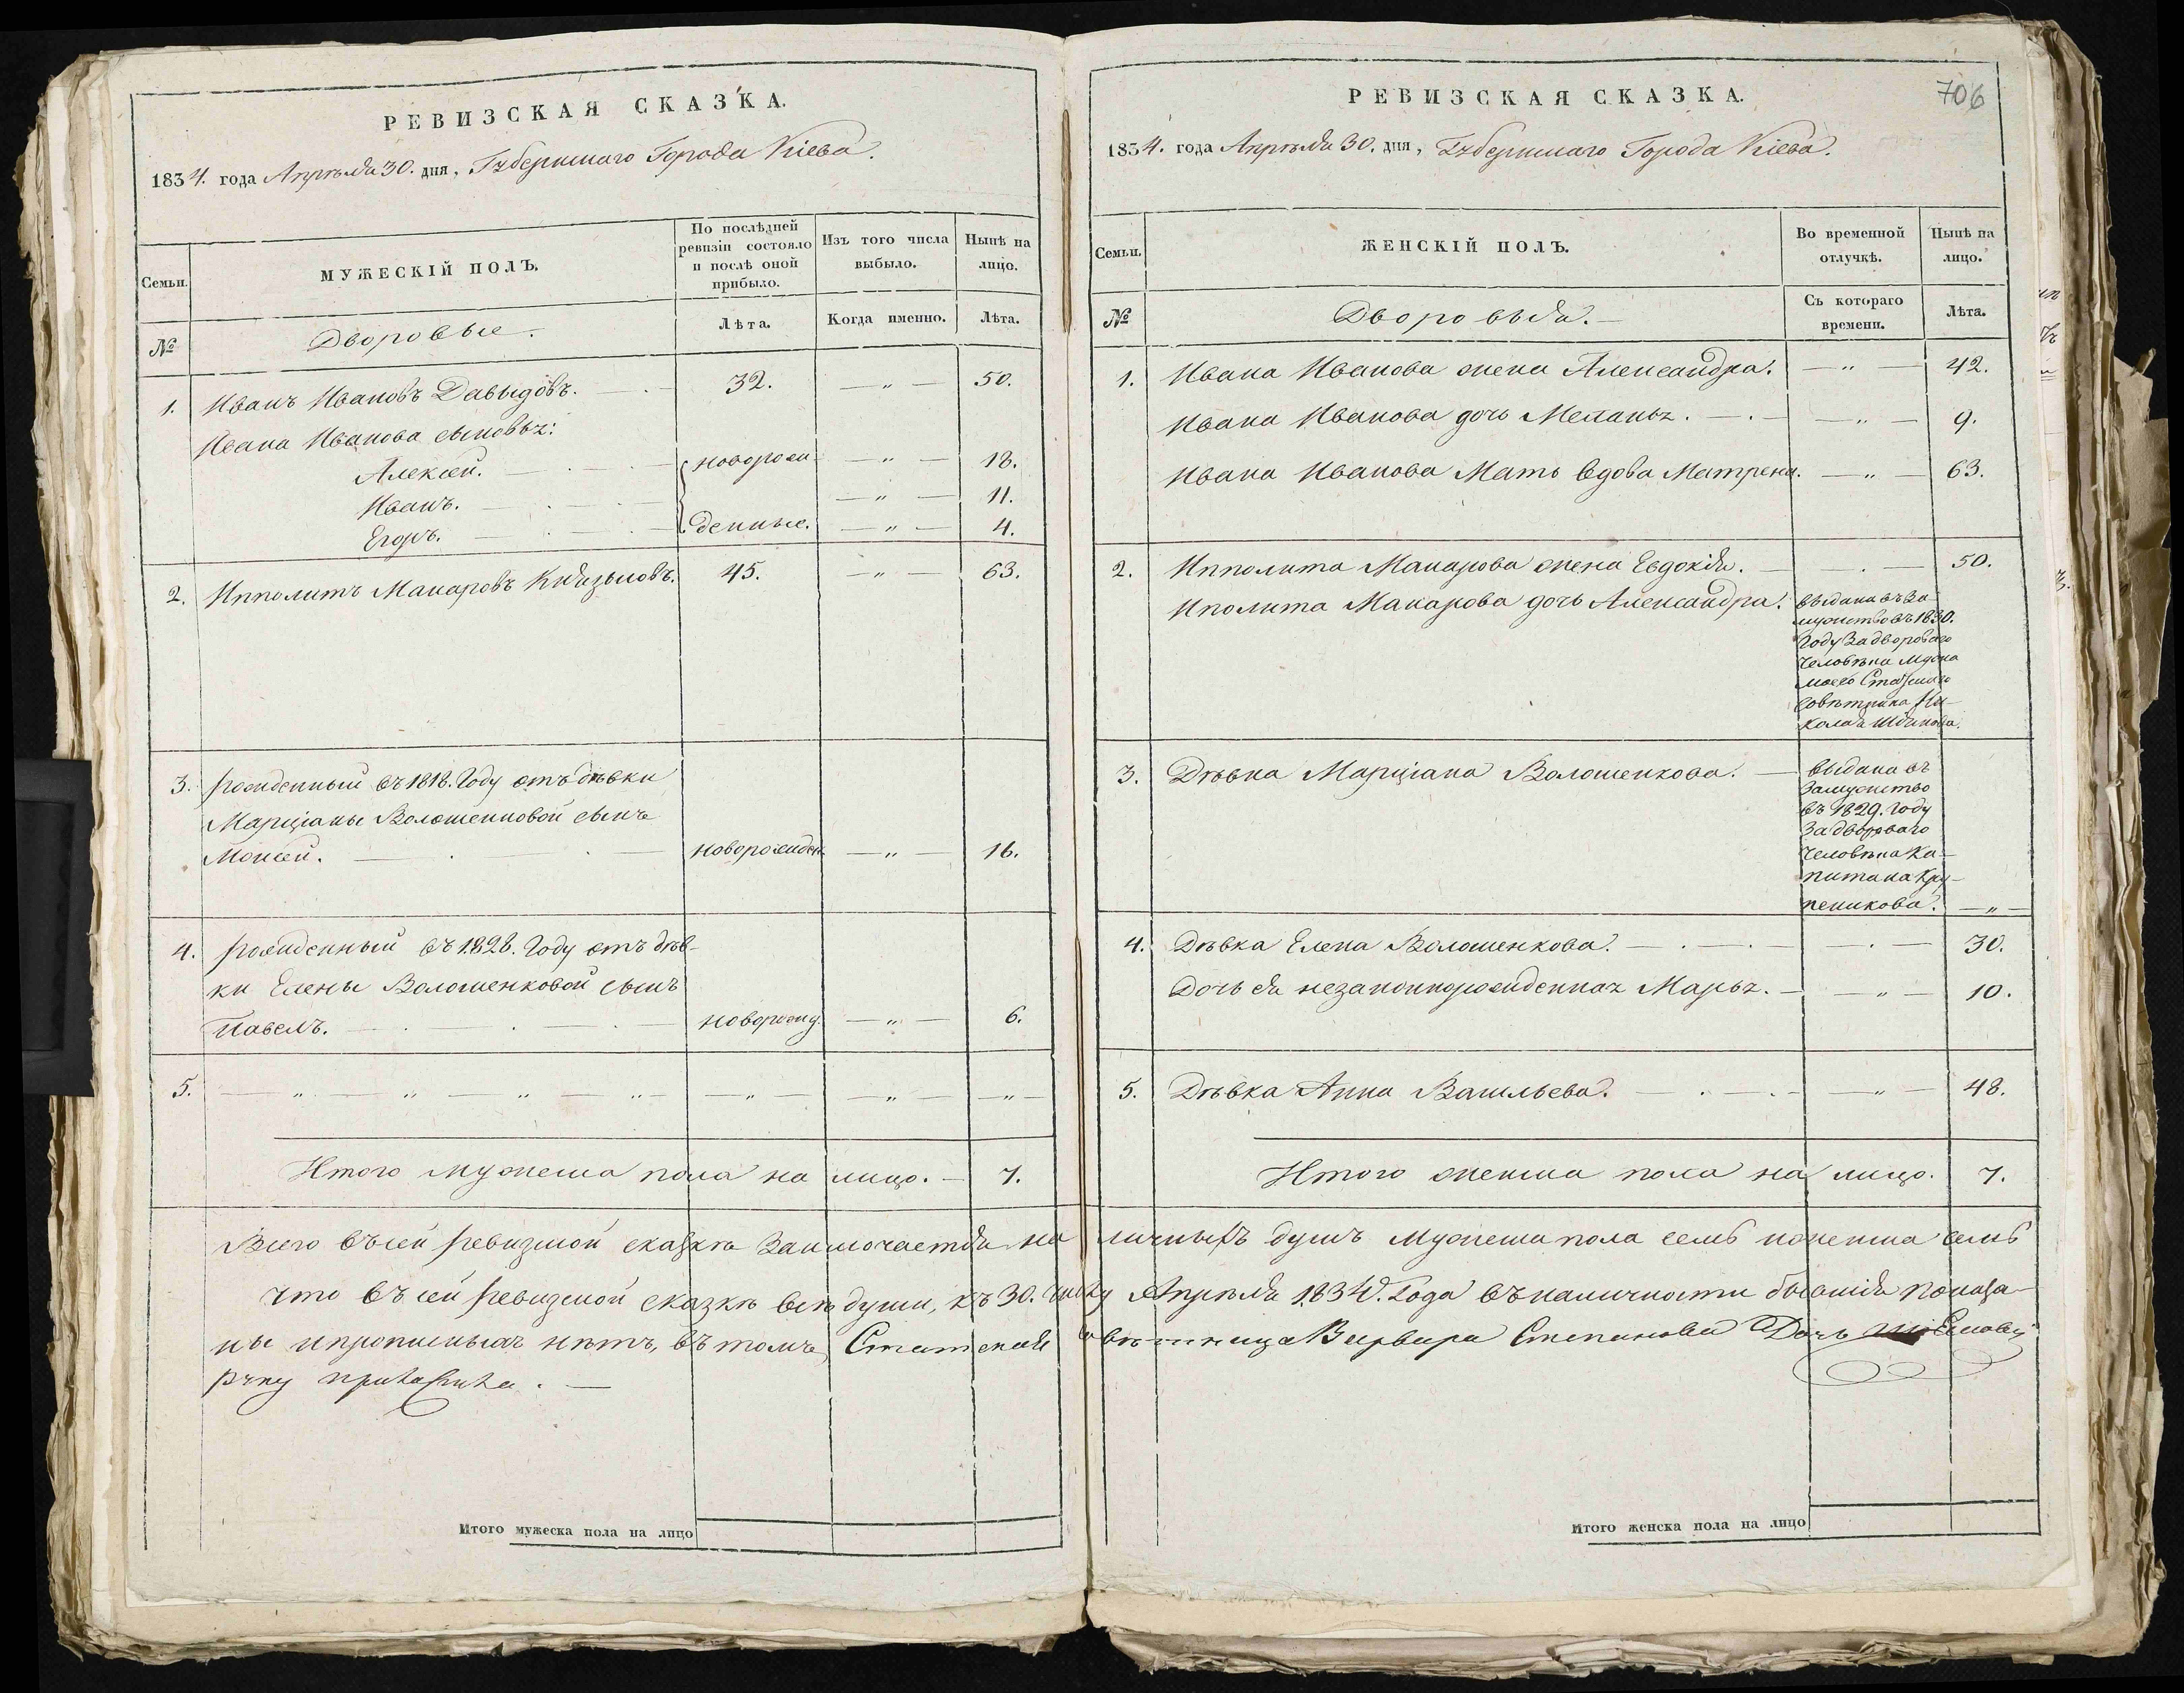 РЕВИЗСКАЯ СКАЗКА.
1834. года Апрѣля 30. дня, Губернскаго Города Кіева.
Семьи.
МУЖЕСКІЙ ПОЛЪ.
По послѣдней
ревизіи состояло
и послѣ оной
прибыло.
Изъ того числа
выбыло.
Нынѣ на
лицо.
№
Дворовые.
Лѣта.
Когда именно.
Лѣта.
1. Иванъ Ивановъ Давыдовъ. 32. — „ — 50.
Ивана Иванова сыновья:
Алексей. новорож- — „ — 18.
Иванъ. — „ — 11.
Егоръ. денные. — „ — 4.
2. Ипполитъ Макаровъ Князьковъ. 45. — „ — 63.
3. рожденный въ 1818. Году отъ дѣвки
Марціаны Волошенковой сынъ
Моисей. новорожден. — „ — 16.
4. рожденный въ 1828. Году отъ дѣв-
ки Елены Волошенковой сынъ
Павелъ. новорожд. — „ — 6.
5. — „ — „ — „ — „ — „ — „ —
Итого мужеска пола на лицо. — 7.
РЕВИЗСКАЯ СКАЗКА.
706
1834. года Апрѣля 30. дня, Губернскаго Города Кіева.
Семьи.
ЖЕНСКІЙ ПОЛЪ.
Во временной
отлучкѣ.
Нынѣ на
лицо.
№
Дворовыя.
Съ котораго
времени.
Лѣта.
1. Ивана Иванова жена Александра. — „ — 42.
Ивана Иванова дочь Меланья. — „ — 9.
Ивана Иванова Мать вдова Матрена. — „ — 63.
2. Ипполита Макарова жена Евдокія. — . — 50.
Иполита Макарова дочь Александра. выдана въ За-
мужство въ 1830.
Году За двороваго
Человѣка мужа
моего Статскаго
Совѣтника Ни-
колая
3. Дѣвка Марціана Волошенкова. — выдана въ
Замужство
въ 1829. Году
За двороваго
Человѣка Ка-
питана Кру-
пеникова. — „ —
4. Дѣвка Елена Волошенкова. — . — 30.
Дочь ея незаконнорожденная Марья. — „ — 10.
5. Дѣвка Анна Васильева. — „ — 48.
Итого женска пола на лицо. 7.
Всего въ сей ревизской сказкѣ Заключается на личныхъ душъ мужеска пола семь и женска семь
что въ сей ревизской сказкѣ всѣ души, къ 30. числу Апрѣля 1834. Года въ наличности бывшія показа-
ны и прописныхъ нѣтъ, въ томъ, Статская Совѣтница Варвара Степанова Дочь
руку приложила. —
Итого мужеска пола на лицо
Итого женска пола на лицо